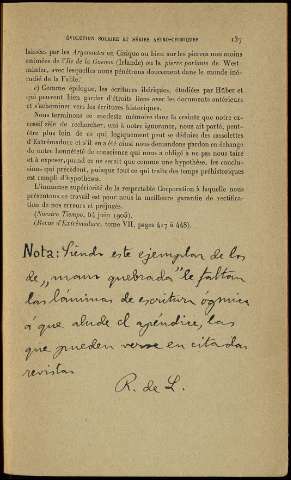 ÉVOLUTION SOLAIRE ET SÉRIES ASTRO-CHIMIQUES 137
laissées par les Argonautes en Cirique ou bien sur les pierres non moins
animées de l'Ile de la Gomme (Irlande) ou la pierre parlante de West-
minster, avec lesquelles nous pénétrons doucement dans le monde iné-
dit de la Fable.
c) Comme épilogue, les écritures ibériques, étudiées par Hüber et
qui peuvent bien garder d'étroits liens avec les documents antérieurs
et s'acheminer vers les écritures historiques.
Nous terminons ce modeste mémoire dans la crainte que notre ex-
cessif zèle de rechercher, uni à notre ignorance, nous ait porté, peut-
être plus loin de ce qui logiquement peut se déduire des cassolettes
d'Estrémadure et s'il en a été ainsi nous demandons pardon en échange
de notre honnêteté de conscience qui nous a obligé à ne pas nous taire
et à exposer, quand ce ne serait que comme une hypothèse, les conclu-
sions qui précèdent, puisque tout ce qui traite des temps préhistoriques
est rempli d'hypothèses.
L'immense supériorité de la respectable Corporation à laquelle nous
présentons ce travail est pour nous la meilleure garantie de rectifica-
tion de nos erreurs et préjugés.
(Nuestro Tiempo, 64 juin 1905).
(Revue d'Estrémadure, tome VII, pages 417 à 448).
Nota: Siendo este ejemplar de los
de "mano quebrada" le faltan
las láminas de escritura ógmica
á que alude el apéndice, las
que pueden verse en citadas
revistas
R. de L.